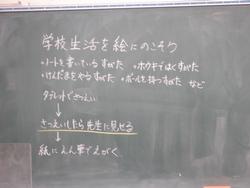 学校生活を絵にのこそう
・ノートを書いているすがた ・ホウキではくすがた
・けんだまをやるすがた ・ボールを持つすがた など
タブレットでさつえい
↓
さつえいしたら先生に見せる
↓
紙にえん筆でえがく